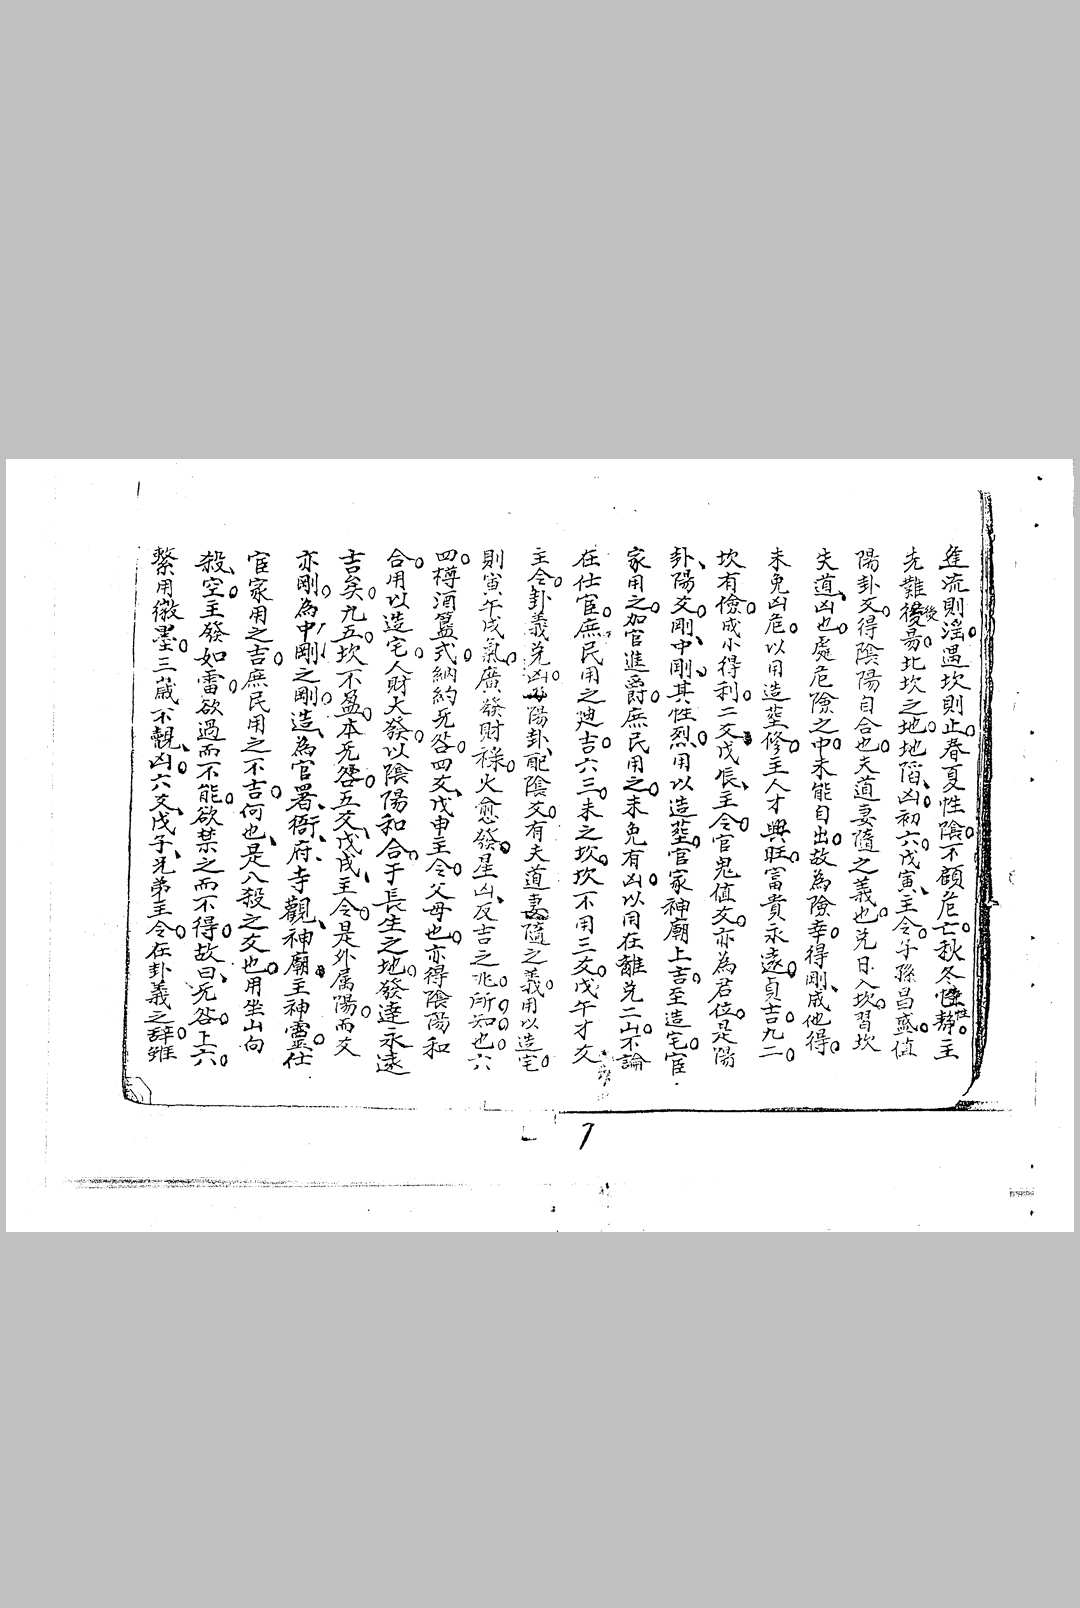 逢流則滛。遇坎則止。春夏性陰。不顧危亡。秋冬性靜。主
先難後易。北坎之地。地陷、凶。初六。戊寅、主令。子孫昌盛。值
陽卦爻。得陰陽自合也。夫道妻隨之義也。兌日入坎。習坎
失道、凶也。處危險之中。未能自出。故為險。幸得剛、成他得。
未免凶危。以用造葬修。主人才興旺。富貴永遠。貞吉。九二。
坎有儉。成小得利。二爻戊辰、主令。官鬼值爻。亦為君位。是陽
卦、陽爻。剛、中剛、其性烈。用以造葬。官家神廟上吉。至造宅。宦
家用之。加官進爵。庶民用之。未免有凶。以用在離兌二山。不論
在仕宦。庶民用之。廸吉。六三。未之坎。坎不用三爻。戊午才爻
主令。卦義兌凶。陽卦、配陰爻。有夫道妻隨之義。用以造宅。
則寅午戌氣。廣發財祿。火愈發。星凶、反吉之兆。所知也。六
四。樽酒簋式。納約旡咎。四爻、戊申主令。父母也。亦得陰陽和
合。用以造宅。人財大發。以陰陽和合。于長生之地。發達永遠
吉矣。九五。坎不盈。本旡咎。五爻、戊戌、主令。是外属陽。而爻
亦剛。為中剛之剛。造、為官署、衙、府、寺觀、神廟。主神靈。仕
宦家用之吉。庶民用之不吉。何也、是八殺之爻也。用坐山向
殺、空。主發如雷。欲過而不能。欲禁之而不得。故曰、旡咎。上六。
繫用徽墨。三嵗不覿、凶。六爻、戊子、兄弟主令。在卦義之辞。雖
後
性
7